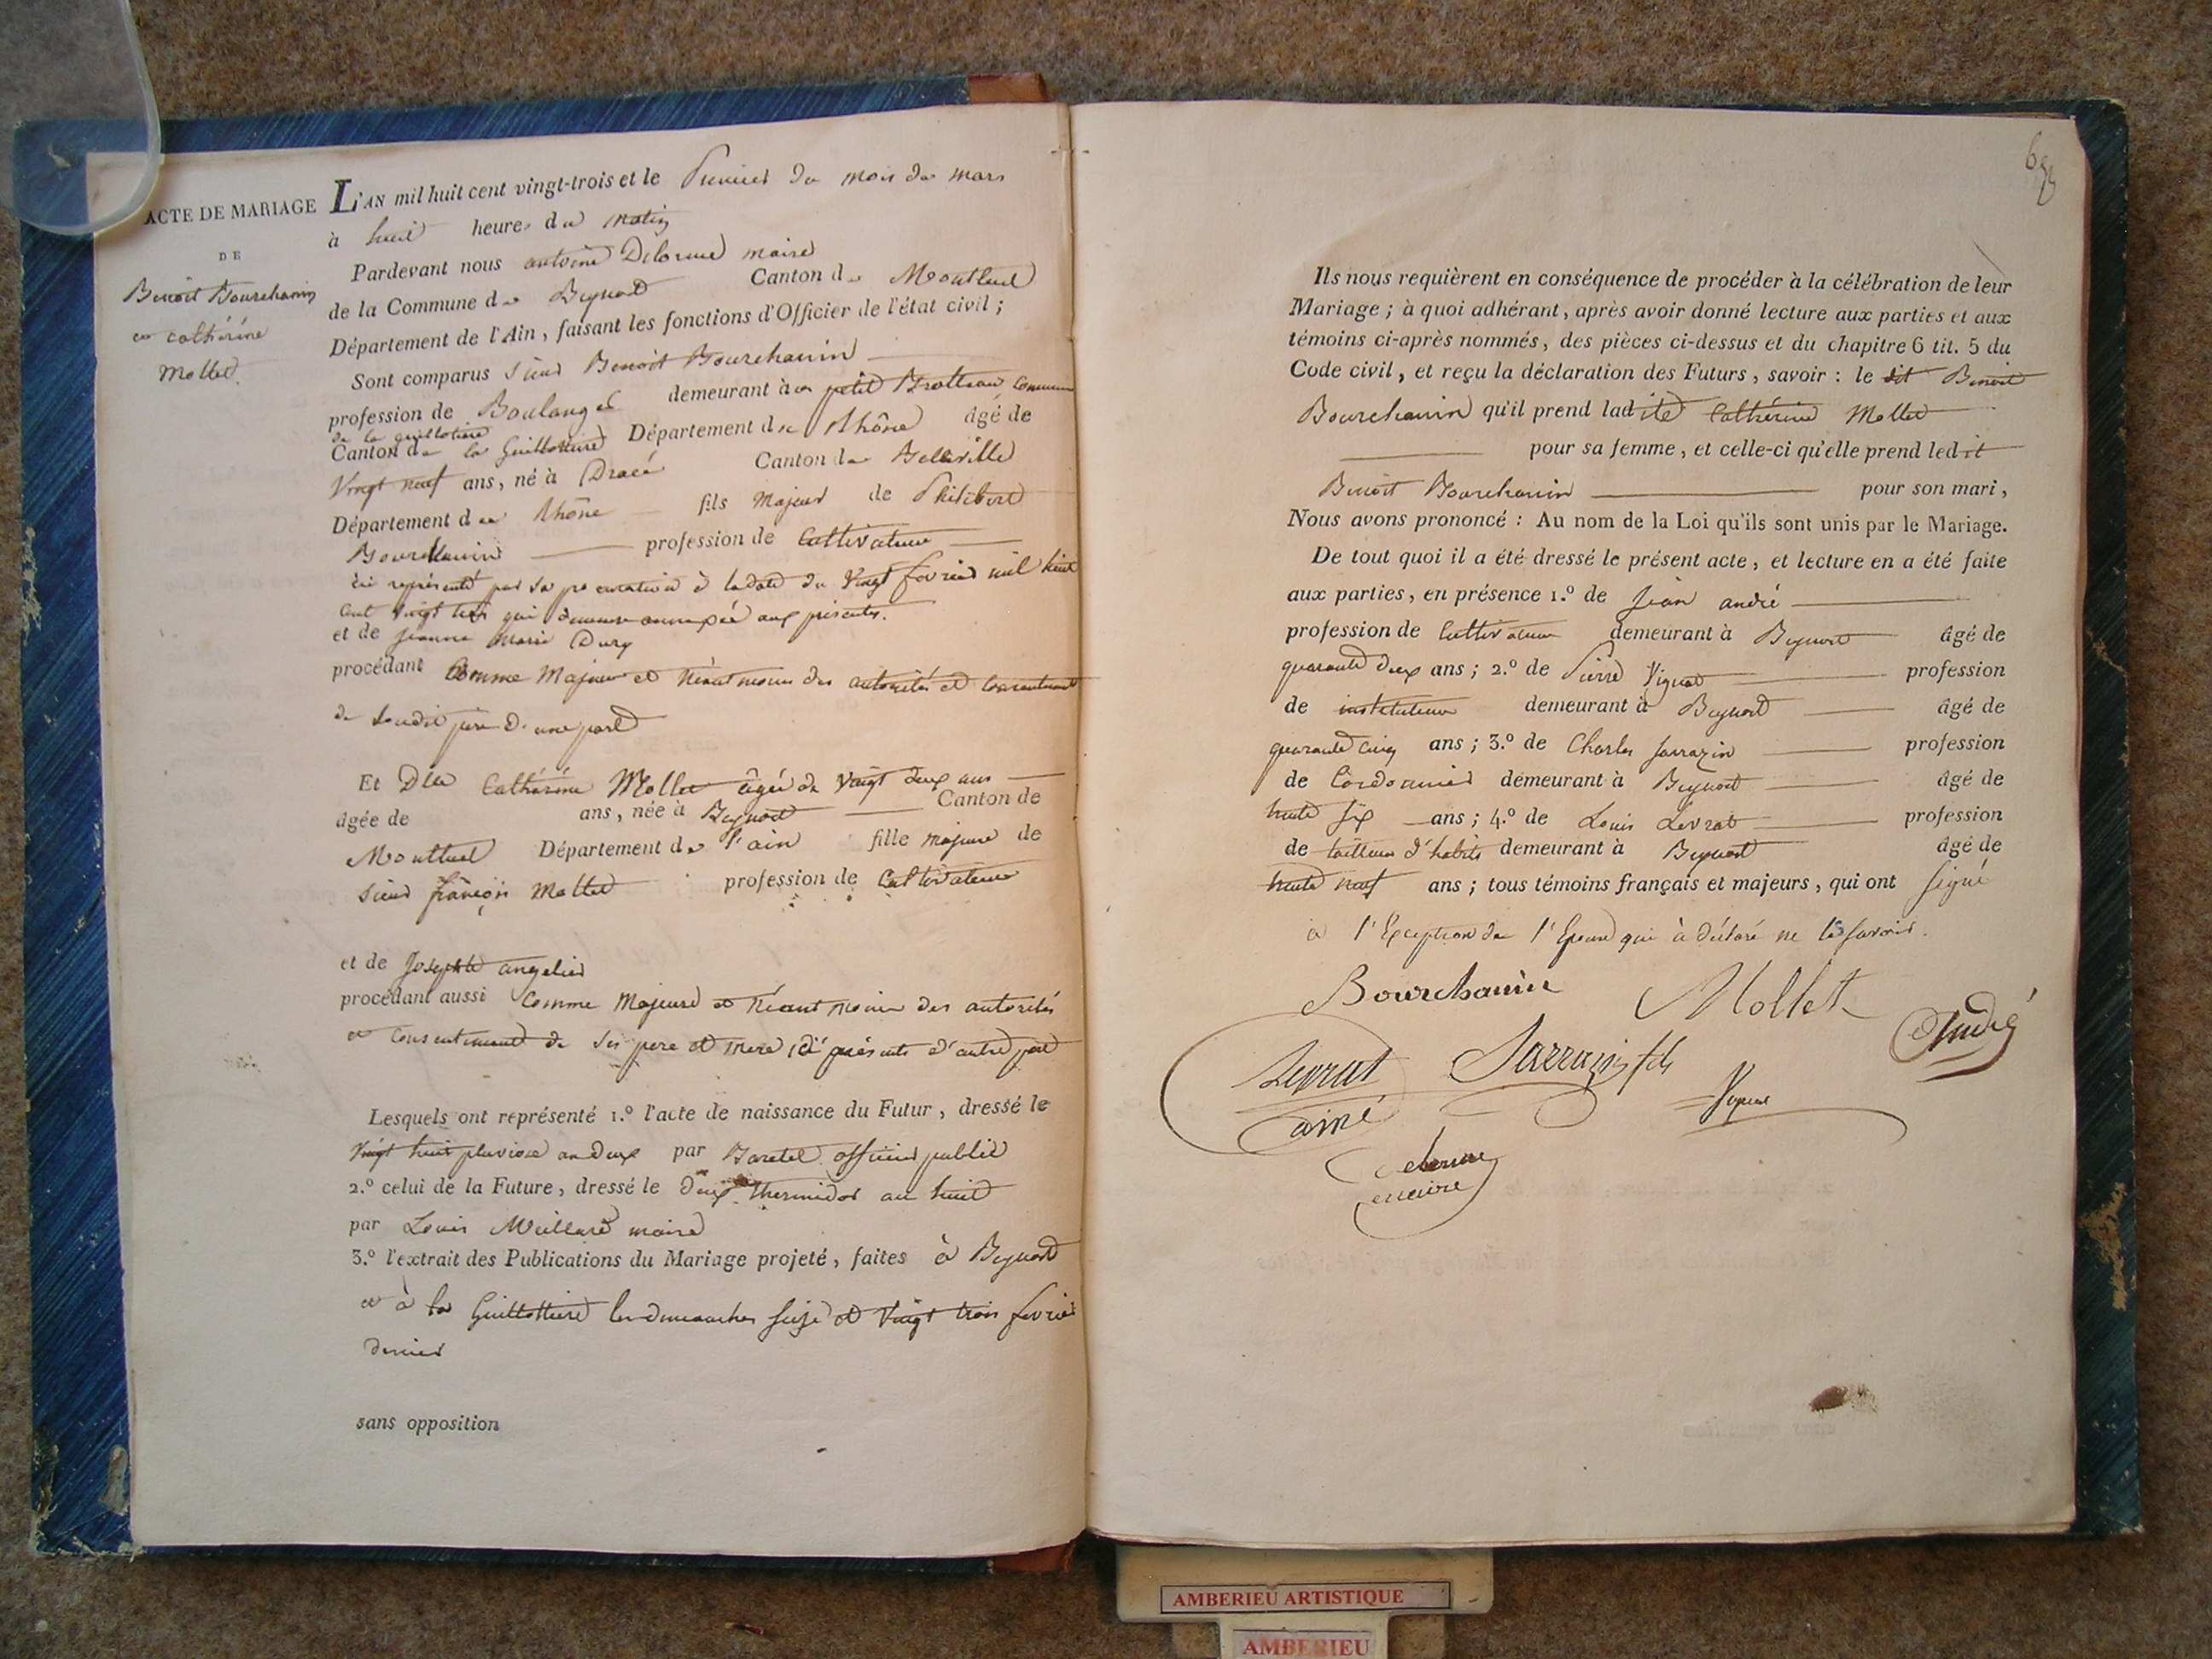 ACTE DE MARIAGE
DE
Benoit Bourchanin
et cathérine
Mollet.
L'AN mil huit cent vingt-trois et le Premier du mois de mars
à huit heures du matin
Pardevant nous antoine Delorme maire
de la Commune de Beynost Canton de Montluel
Département de l'Ain, faisant les fonctions d'Officier de l'état civil ;
Sont comparus Sieur Benoit Bourchanin
profession de Boulanger demeurant à petit Brotteau commune
de la guillotiere
Canton de la Guillottiere Département du Rhône âgé de
Vingt neuf ans, né à Dracé Canton de Belleville
Département du Rhône fils Majeur de Philibert
Bourchanin profession de Cultivateur
ici représenté par sa procuration à la date du Vingt fevrier mil huit
cent vingt trois qui demeure annexée aux présentes.
et de jeanne Marie Dury
procédant Comme Majeur et Néantmoins des autorités et Consentement
de sondit père d'une part
Et Dlle Cathérine Mollet âgée de Vingt deux ans
âgée de ans, née à Beynost Canton de
Montluel Département de l'ain fille majeure de
Sieur françois Mollet profession de Cultivateur
et de Josephte angelier
procédant aussi Comme Majeure et Néantmoins des autorités
et Consentement de ses pere et mere, ici présents d'autre part
Lesquels ont représenté 1.º l'acte de naissance du Futur, dressé le
Vingt huit pluviose an deux par Baretel officier public
2.º celui de la Future, dressé le deux thermidor an huit
par Louis Meillard maire
3.º l'extrait des Publications du Mariage projeté, faites à Beynost
et à la Guillottiere les dimanches seize et Vingt trois fevrier
dernier
sans opposition
Ils nous requièrent en conséquence de procéder à la célébration de leur
Mariage ; à quoi adhérant, après avoir donné lecture aux parties et aux
témoins ci-après nommés, des pièces ci-dessus et du chapitre 6 tit. 5 du
Code civil, et reçu la déclaration des Futurs, savoir : le dit Benoit
Bourchanin qu'il prend ladite Cathérine Mollet
pour sa femme, et celle-ci qu'elle prend ledit
Benoit Bourchanin pour son mari,
Nous avons prononcé : Au nom de la Loi qu'ils sont unis par le Mariage.
De tout quoi il a été dressé le présent acte, et lecture en a été faite
aux parties, en présence 1.º de Jean andré
profession de Cultivateur demeurant à Beynost âgé de
quarante deux ans ; 2.º de Pierre Vignat profession
de instituteur demeurant à Beynost âgé de
quarante cinq ans ; 3.º de Charles Sarrazin profession
de Cordonnier demeurant à Beynost âgé de
trente six ans ; 4.º de Louis Levrat profession
de tailleur d'habits demeurant à Beynost âgé de
trente neuf ans ; tous témoins français et majeurs, qui ont signé
à l'Exception de l'Epouse qui à déclaré ne le savoir.
Bourchanin Mollet
André
Levrat Sarrazin fils
ainé Vignat
Delorme
maire
AMBERIEU ARTISTIQUE
AMBERIEU